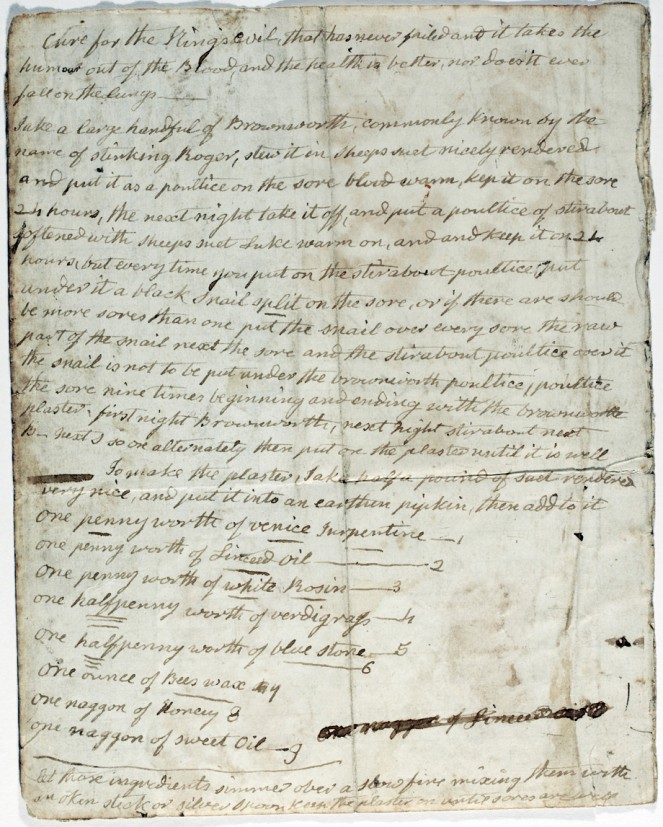 Cure for the Kings evil, that has never failed and it takes the
humour out of the Blood, and the health is better, nor does it ever
fall on the lungs
Take a large handful of Brownsworth, commonly known by the
name of stinking Roger, stew it in sheeps suet nicely rendered
and put it as a poultice on the sore blood warm, kep it on the sore
24 hours, the next night take it off, and put a poultice of stirabout
softened with sheeps suet Luke warm on, and and keep it on 24
hours, but every time you put on the stirabout poultice, put
under it a black snail split on the sore, or if there are should
be more sores than one put the snail over every sore the raw
part of the snail next the sore and the stirabout poultice over it
the snail is not to be put under the brownworth poultice, poultice
the sore nine times beginning and ending with the brownworth
plaster. first night Brownworth, next night stirabout next
B— next S so on alternately then put on the plaster until it is well
To make the plaster, Take half a pound of suet rendered
very nice, and put it into an earthen pipkin, then add to it
One penny worth of venice Turpentine — 1
one penny worth of Linceed Oil — 2
One penny worth of white Rosin — 3
one halfpenny worth of verdigrass — 4
one halfpenny worth of blue stone — 5
One ounce of Bees wax 6
one naggon of Honey 8
one naggon of sweet Oil — 9
one naggon of Linceed
let those ingredients simmer over a slow fire mixing them with
an oken stick or silver spoon keep the plaster on until sores are well